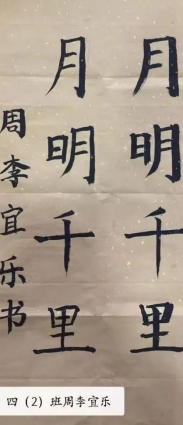 月明千里
月明千里
周李宜乐书
四（2）班周李宜乐